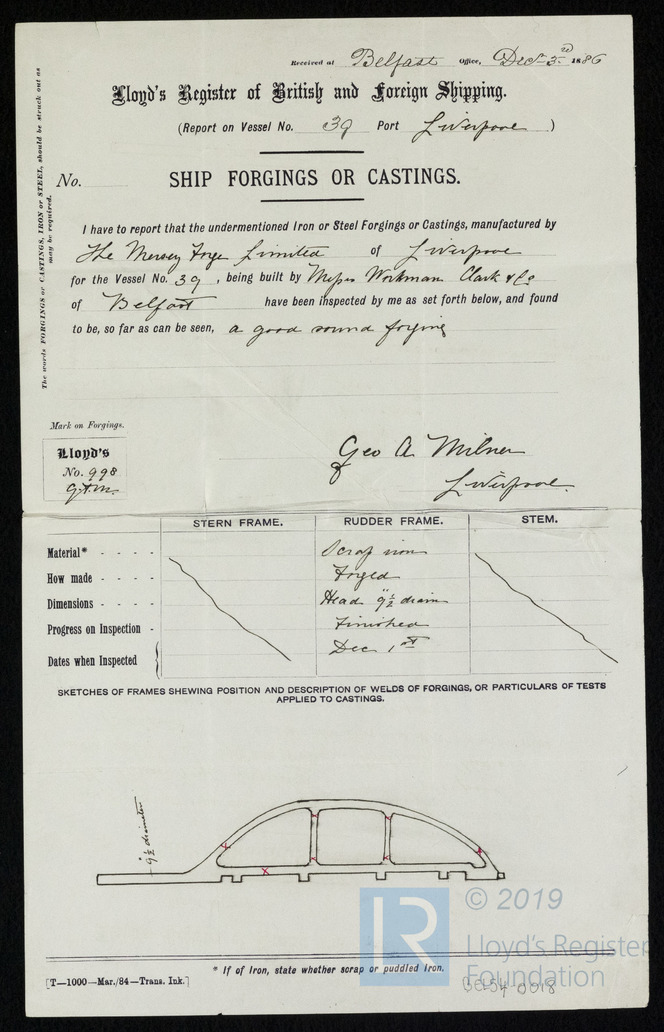 Received at Belfast Office, Decr 3rd 1886
Lloyd's Register of British and Foreign Shipping.
(Report on Vessel No. 39 Port Liverpool )
No.
SHIP FORGINGS OR CASTINGS.
I have to report that the undermentioned Iron or Steel Forgings or Castings, manufactured by
The Mersey Forge Limited of Liverpool
for the Vessel No. 39 , being built by Messrs Workman Clark & Co
of Belfast have been inspected by me as set forth below, and found
to be, so far as can be seen, a good sound forging
The words FORGINGS or CASTINGS, IRON or STEEL, should be struck out as
may be required.
Mark on Forgings.
Lloyd's
No. 998
G.A.M.
Geo A. Milner
Liverpool.
STERN FRAME. RUDDER FRAME. STEM.
Material* - - - - Scrap iron
How made - - - - Forged
Dimensions - - - - Head 9½" diam
Progress on Inspection - Finished
Dates when Inspected Dec 1st
SKETCHES OF FRAMES SHEWING POSITION AND DESCRIPTION OF WELDS OF FORGINGS, OR PARTICULARS OF TESTS
APPLIED TO CASTINGS.
9½" diameter
* If of Iron, state whether scrap or puddled iron.
[T—1000—Mar./84—Trans. Ink.]
LR
© 2019
Lloyd's Register
Foundation
BEL54-0018